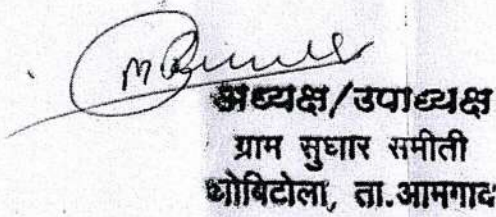 अध्यक्ष/उपाध्यक्ष
ग्राम सुधार समीती
धोबिटोला, ता.आमगाव